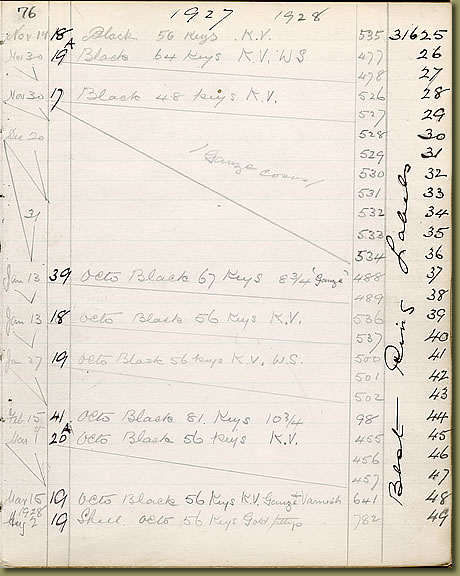 76 1927 1928
Nov 14 18 Black 56 Keys K.V. 535 31625
Nov 30 19 A Black 64 Keys K.V. WS 477 26
478 27
Nov 30 17 Black 48 Keys K.V. 526 28
527 29
Dec 20 528 30
529 31
(Gauze covers) 530 32
531 33
31 532 34
533 35
534 36
Jan 13 39 Octo Black 67 Keys 8 3/4 "Gauze" 488 37
489 38
Jan 13 18 Octo Black 56 Keys K.V. 536 39
537 40
Jan 27 19 Octo Black 56 Keys K.V. W.S. 500 41
501 42
502 43
Feb 15 41 Octo Black 81 Keys 10 3/4 98 44
Mar 9 20 A Octo Black 56 Keys K.V. 455 45
456 46
457 47
Mar 15 19 Octo Black 56 Keys K.V. Gauze + Varnish 641 48
1928
Aug 2 19 Shell Octo 56 Keys Gold 782 49
Best Ring Labels